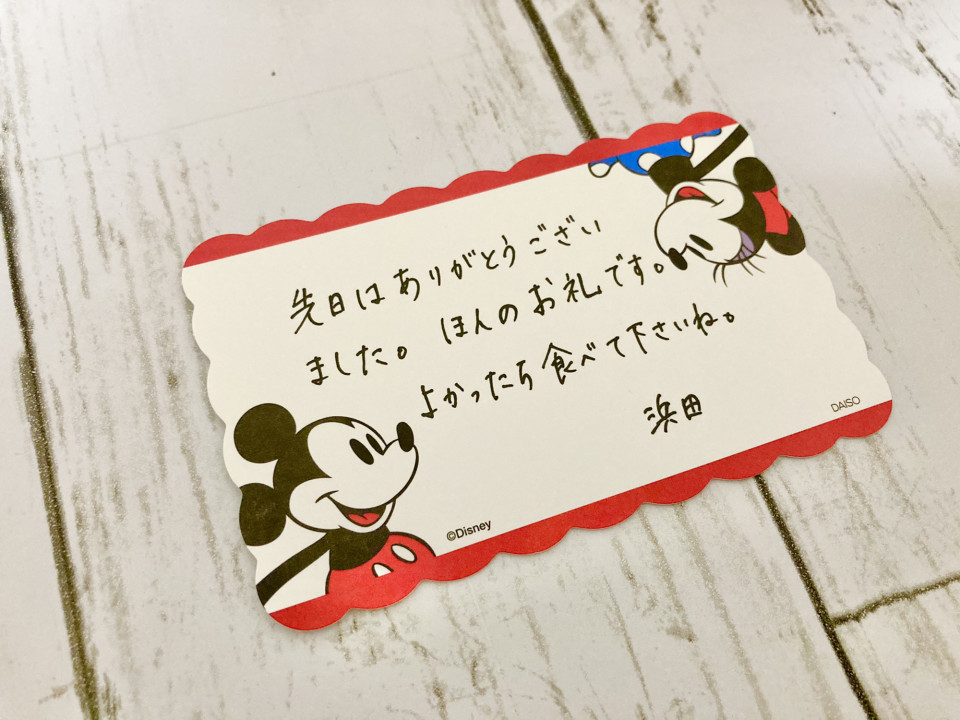 先日はありがとうござい
ました。ほんのお礼です。
よかったら食べて下さいね。
浜田
DAISO
©Disney